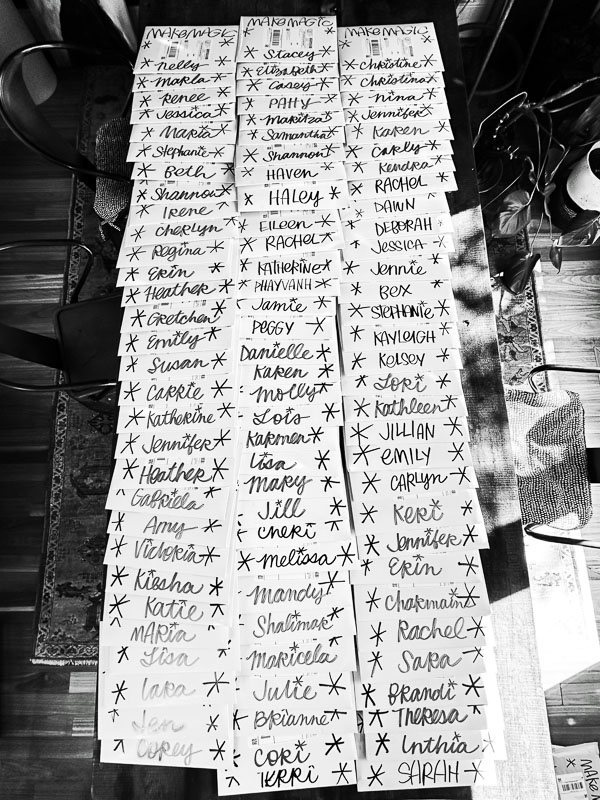 MAKE MAGIC
Nelly
Marla
Renee
Jessica
Maria
Stephanie
Beth
Shannon
Irene
Cherlyn
Regina
Erin
Heather
Gretchen
Emily
Susan
Carrie
Katherine
Jennifer
Heather
Gabriela
Amy
Vicheria
Kiesha
Katie
Maria
Lisa
Iara
Jen
Corey
MAKE MAGIC
Stacey
Elizabeth
Casey
PATTY
Maritza
Samantha
Shannon
HAVEN
HALEY
EILEEN
RACHEL
KATHERINE
PHAYVANH
Jamie
PEGGY
Danielle
Karen
Molly
Lois
Karmen
Lisa
Mary
Jill
Cheri
Melissa
Mandy
Shalimar
Maricela
Julie
Brianne
CORI
TERRI
MAKE MAGIC
Christine
Christina
Nina
Jennifer
Karen
Carly
Kendra
RACHEL
DAWN
DEBORAH
JESSICA
Jennie
BEX
STEPHANIE
KAYLEIGH
KELSEY
Lori
Kathleen
JILLIAN
EMILY
CARLYN
Keri
Jennifer
Erin
Charmain
Rachel
Sara
BRANDI
THERESA
Inthia
SARAH
MAKE M